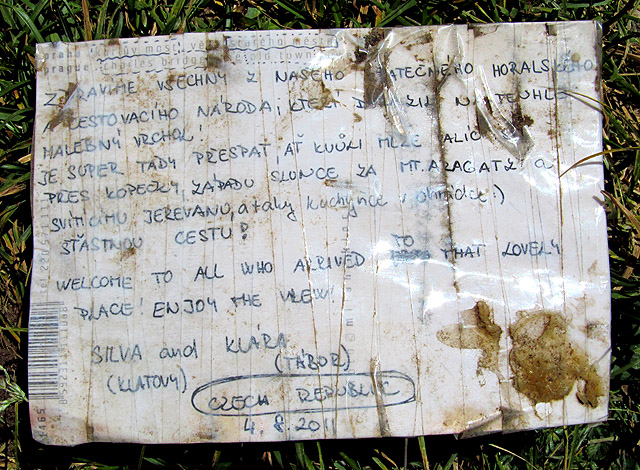 praha
prague charles bridge old town
ZDRAVÍME VŠECHNY Z NAŠEHO STATEČNÉHO HORALSKÉHO
A CESTOVACÍHO NÁRODA, KTEŘÍ NA TENHLE
MALEBNÝ VRCHOL!
JE SUPER TADY PŘESPAT, AŤ KVŮLI MLZE
PŘES KOPEČKY, ZÁPADU SLUNCE ZA MT. ARAGATZ A
SVÍTÍCÍMU JEREVANU, a taky kuchyňce v ohrádce :)
ŠŤASTNOU CESTU!
WELCOME TO ALL WHO ARRIVED TO THAT LOVELY
PLACE! ENJOY THE VIEW!
SILVA and KLÁRA
(KLATOVY) (TÁBOR)
CZECH REPUBLIC
4. 8. 2011